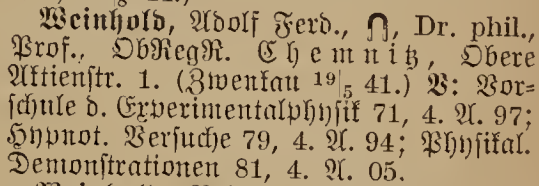 Weinhold, Adolf Ferd., ⋂, Dr. phil.,
Prof., ObRegR. Chemnitz, Obere
Aktienstr. 1. (Zwenkau 19/5 41.) V: Vor-
schule d. Experimentalphysik 71, 4. A. 97;
Hypnot. Versuche 79, 4. A. 94; Physikal.
Demonstrationen 81, 4. A. 05.